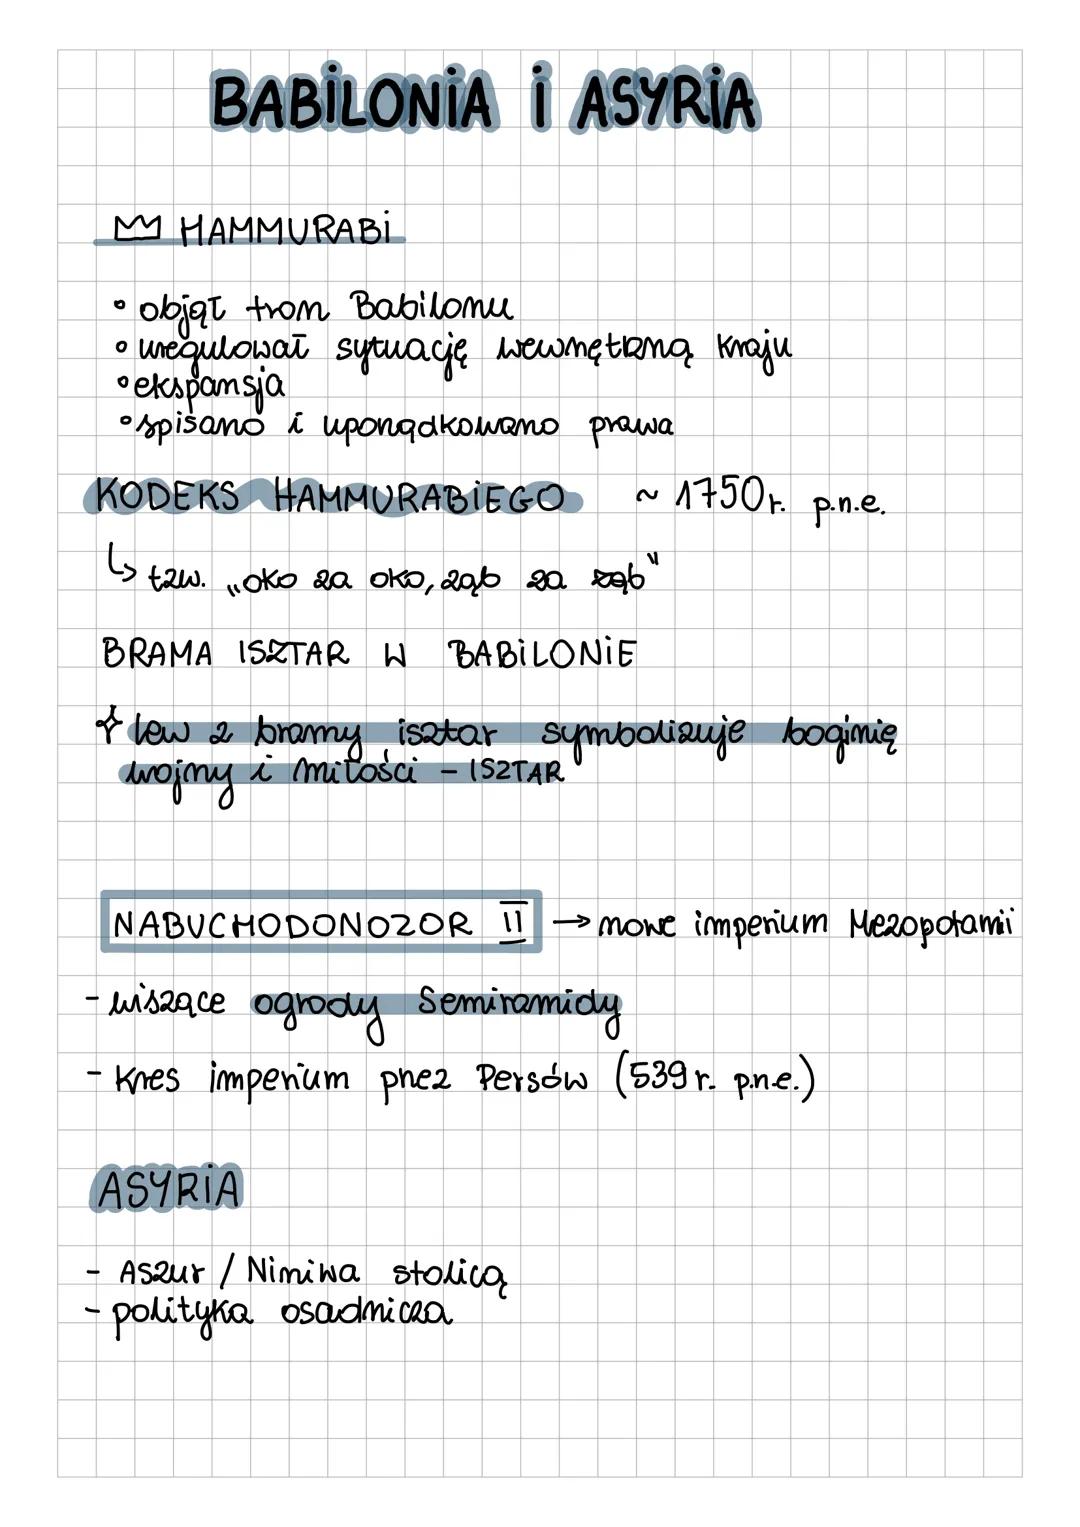 BABILONIA i ASYRIA
HAMMURABI
• objął tron Babilonu
• uregulował sytuację wewnętrzną kraju
• ekspansja
• spisano i uporządkowano prawa
KODEKS HAMMURABIEGO ~ 1750r. p.n.e.
↳ tzw. „oko za oko, ząb za ząb"
BRAMA ISZTAR W BABILONIE
✧ lew z bramy isztar symbolizuje boginię
wojny i miłości - ISZTAR
NABUCHODONOZOR II → nowe imperium Mezopotamii
- wiszące ogrody Semiramidy
- Kres imperium przez Persów (539 r. p.n.e.)
ASYRIA
- Aszur / Niniwa stolicą
- polityka osadnicza